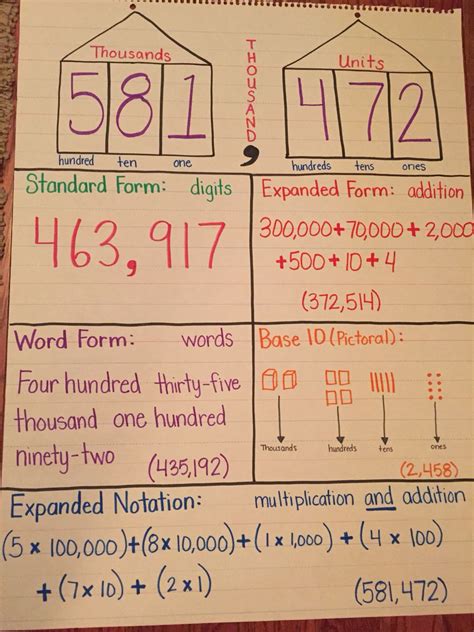 Thousands
THOUSAND
Units
581
,
472
hundred ten one
hundreds tens ones
Standard Form: digits
463,917
Expanded Form: addition
300,000+70,000+2,000
+500+10+4
(372,514)
Word Form: words
Four hundred thirty-five
thousand one hundred
ninety-two
(435,192)
Base 10 (Pictoral):
Thousands hundreds tens ones
(2,458)
Expanded Notation: multiplication and addition
(5 x 100,000)+(8x 10,000)+(1 x 1,000) + (4 x 100)
+ (7x 10) + (2 x 1)
(581,472)